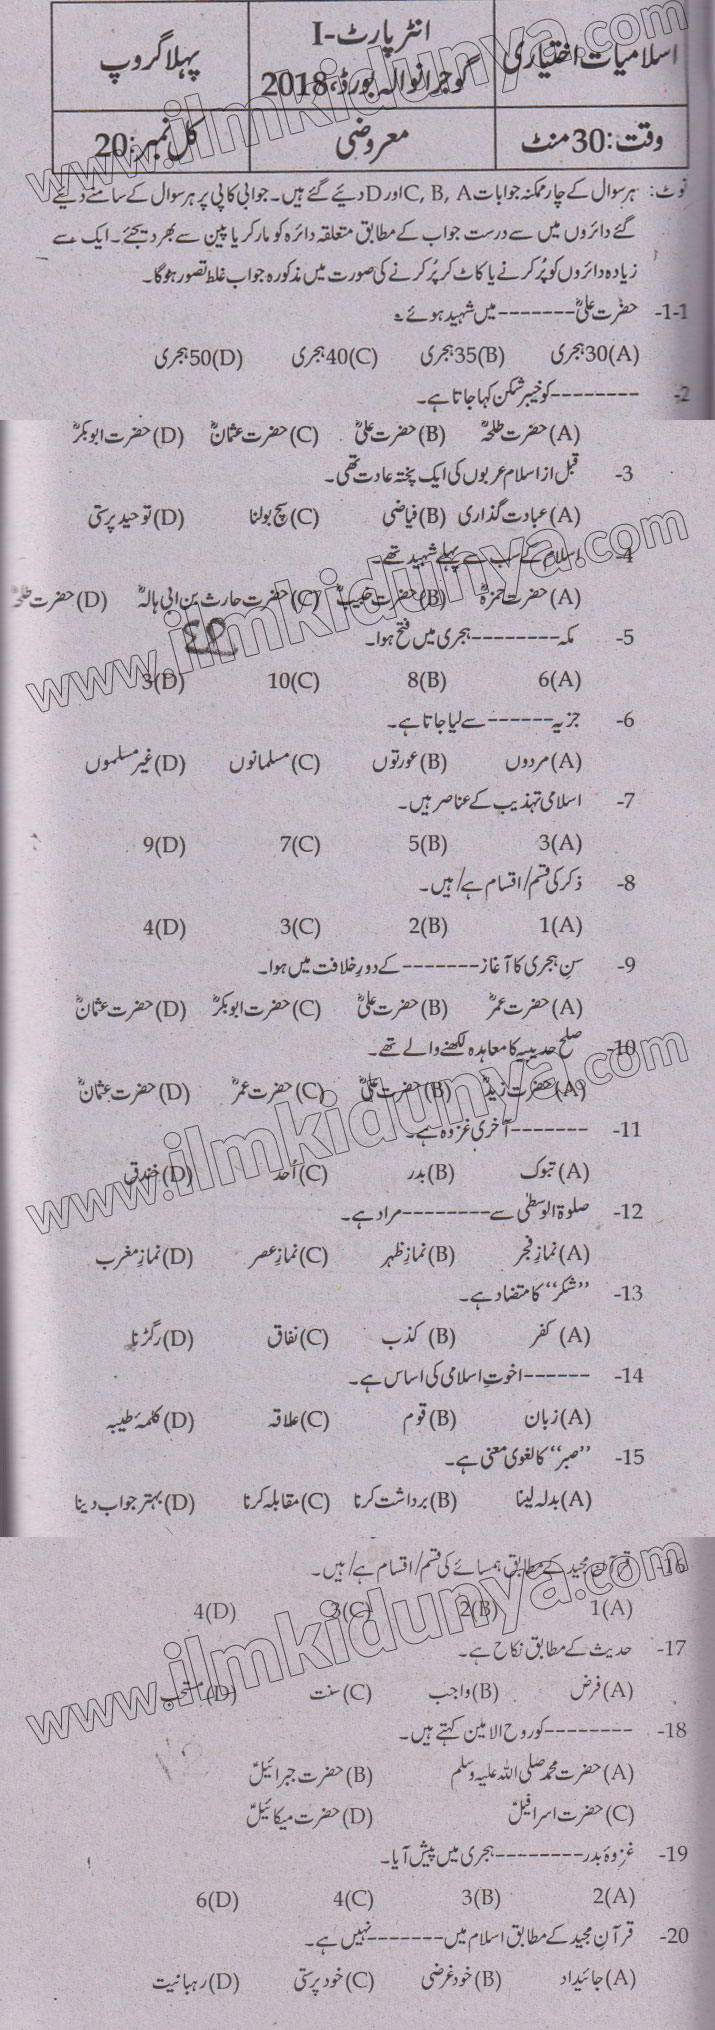 اسلامیات اختیاری
انٹر پارٹ-I
گوجرانوالہ بورڈ، 2018
پہلا گروپ
وقت: 30 منٹ
معروضی
کل نمبر: 20
نوٹ: ہر سوال کے چار ممکنہ جوابات A, B, C اور D دیئے گئے ہیں۔ جوابی کاپی پر ہر سوال کے سامنے دیئے
گئے دائروں میں سے درست جواب کے مطابق متعلقہ دائرہ کو مارکر یا پین سے بھر دیجئے۔ ایک سے
زیادہ دائروں کو پُر کرنے یا کاٹ کر پُر کرنے کی صورت میں مذکورہ جواب غلط تصور ہوگا۔
1-1- حضرت علیؓ ------- میں شہید ہوئے۔
(A) 30 ہجری (B) 35 ہجری (C) 40 ہجری (D) 50 ہجری
2- -------- کو خیبر شکن کہا جاتا ہے۔
(A) حضرت طلحہؓ (B) حضرت علیؓ (C) حضرت عثمانؓ (D) حضرت ابوبکرؓ
3- قبل از اسلام عربوں کی ایک پختہ عادت تھی۔
(A) عبادت گذاری (B) فیاضی (C) سچ بولنا (D) توحید پرستی
4- اسلام کے سب سے پہلے شہید تھے۔
(A) حضرت حمزہؓ (B) حضرت خبیبؓ (C) حضرت حارث بن ابی ہالہؓ (D) حضرت طلحہؓ
5- مکہ -------- ہجری میں فتح ہوا۔
(A) 6 (B) 8 (C) 10 (D) 3
6- جزیہ ------ سے لیا جاتا ہے۔
(A) مردوں (B) عورتوں (C) مسلمانوں (D) غیر مسلموں
7- اسلامی تہذیب کے عناصر ہیں۔
(A) 3 (B) 5 (C) 7 (D) 9
8- ذکر کی قسم/اقسام ہے/ہیں۔
(A) 1 (B) 2 (C) 3 (D) 4
9- سنِ ہجری کا آغاز ------- کے دورِ خلافت میں ہوا۔
(A) حضرت عمرؓ (B) حضرت علیؓ (C) حضرت ابوبکرؓ (D) حضرت عثمانؓ
10- صلح حدیبیہ کا معاہدہ لکھنے والے تھے۔
(A) حضرت زیدؓ (B) حضرت علیؓ (C) حضرت عمرؓ (D) حضرت عثمانؓ
11- ------- آخری غزوہ ہے۔
(A) تبوک (B) بدر (C) اُحد (D) خندق
12- صلوٰۃ الوسطٰی سے -------- مراد ہے۔
(A) نمازِ فجر (B) نمازِ ظہر (C) نمازِ عصر (D) نمازِ مغرب
13- ”شکر“ کا متضاد ہے۔
(A) کفر (B) کذب (C) نفاق (D) رگڑنا
14- ------ اخوتِ اسلامی کی اساس ہے۔
(A) زبان (B) قوم (C) علاقہ (D) کلمۂ طیبہ
15- ”صبر“ کا لغوی معنی ہے۔
(A) بدلہ لینا (B) برداشت کرنا (C) مقابلہ کرنا (D) بہتر جواب دینا
16- قرآن مجید کے مطابق ہمسائے کی قسم/اقسام ہے/ہیں۔
(A) 1 (B) 2 (C) 3 (D) 4
17- حدیث کے مطابق نکاح ہے۔
(A) فرض (B) واجب (C) سنت (D) مستحب
18- -------- کو روح الامین کہتے ہیں۔
(A) حضرت محمد صلی اللہ علیہ وسلم (B) حضرت جبرائیلؑ
(C) حضرت اسرافیلؑ (D) حضرت میکائیلؑ
19- غزوۂ بدر -------- ہجری میں پیش آیا۔
(A) 2 (B) 3 (C) 4 (D) 6
20- قرآنِ مجید کے مطابق اسلام میں ------- نہیں ہے۔
(A) جائیداد (B) خود غرضی (C) خود پرستی (D) رہبانیت
www.ilmkidunya.com
www.ilmkidunya.com
www.ilmkidunya.com
www.ilmkidunya.com